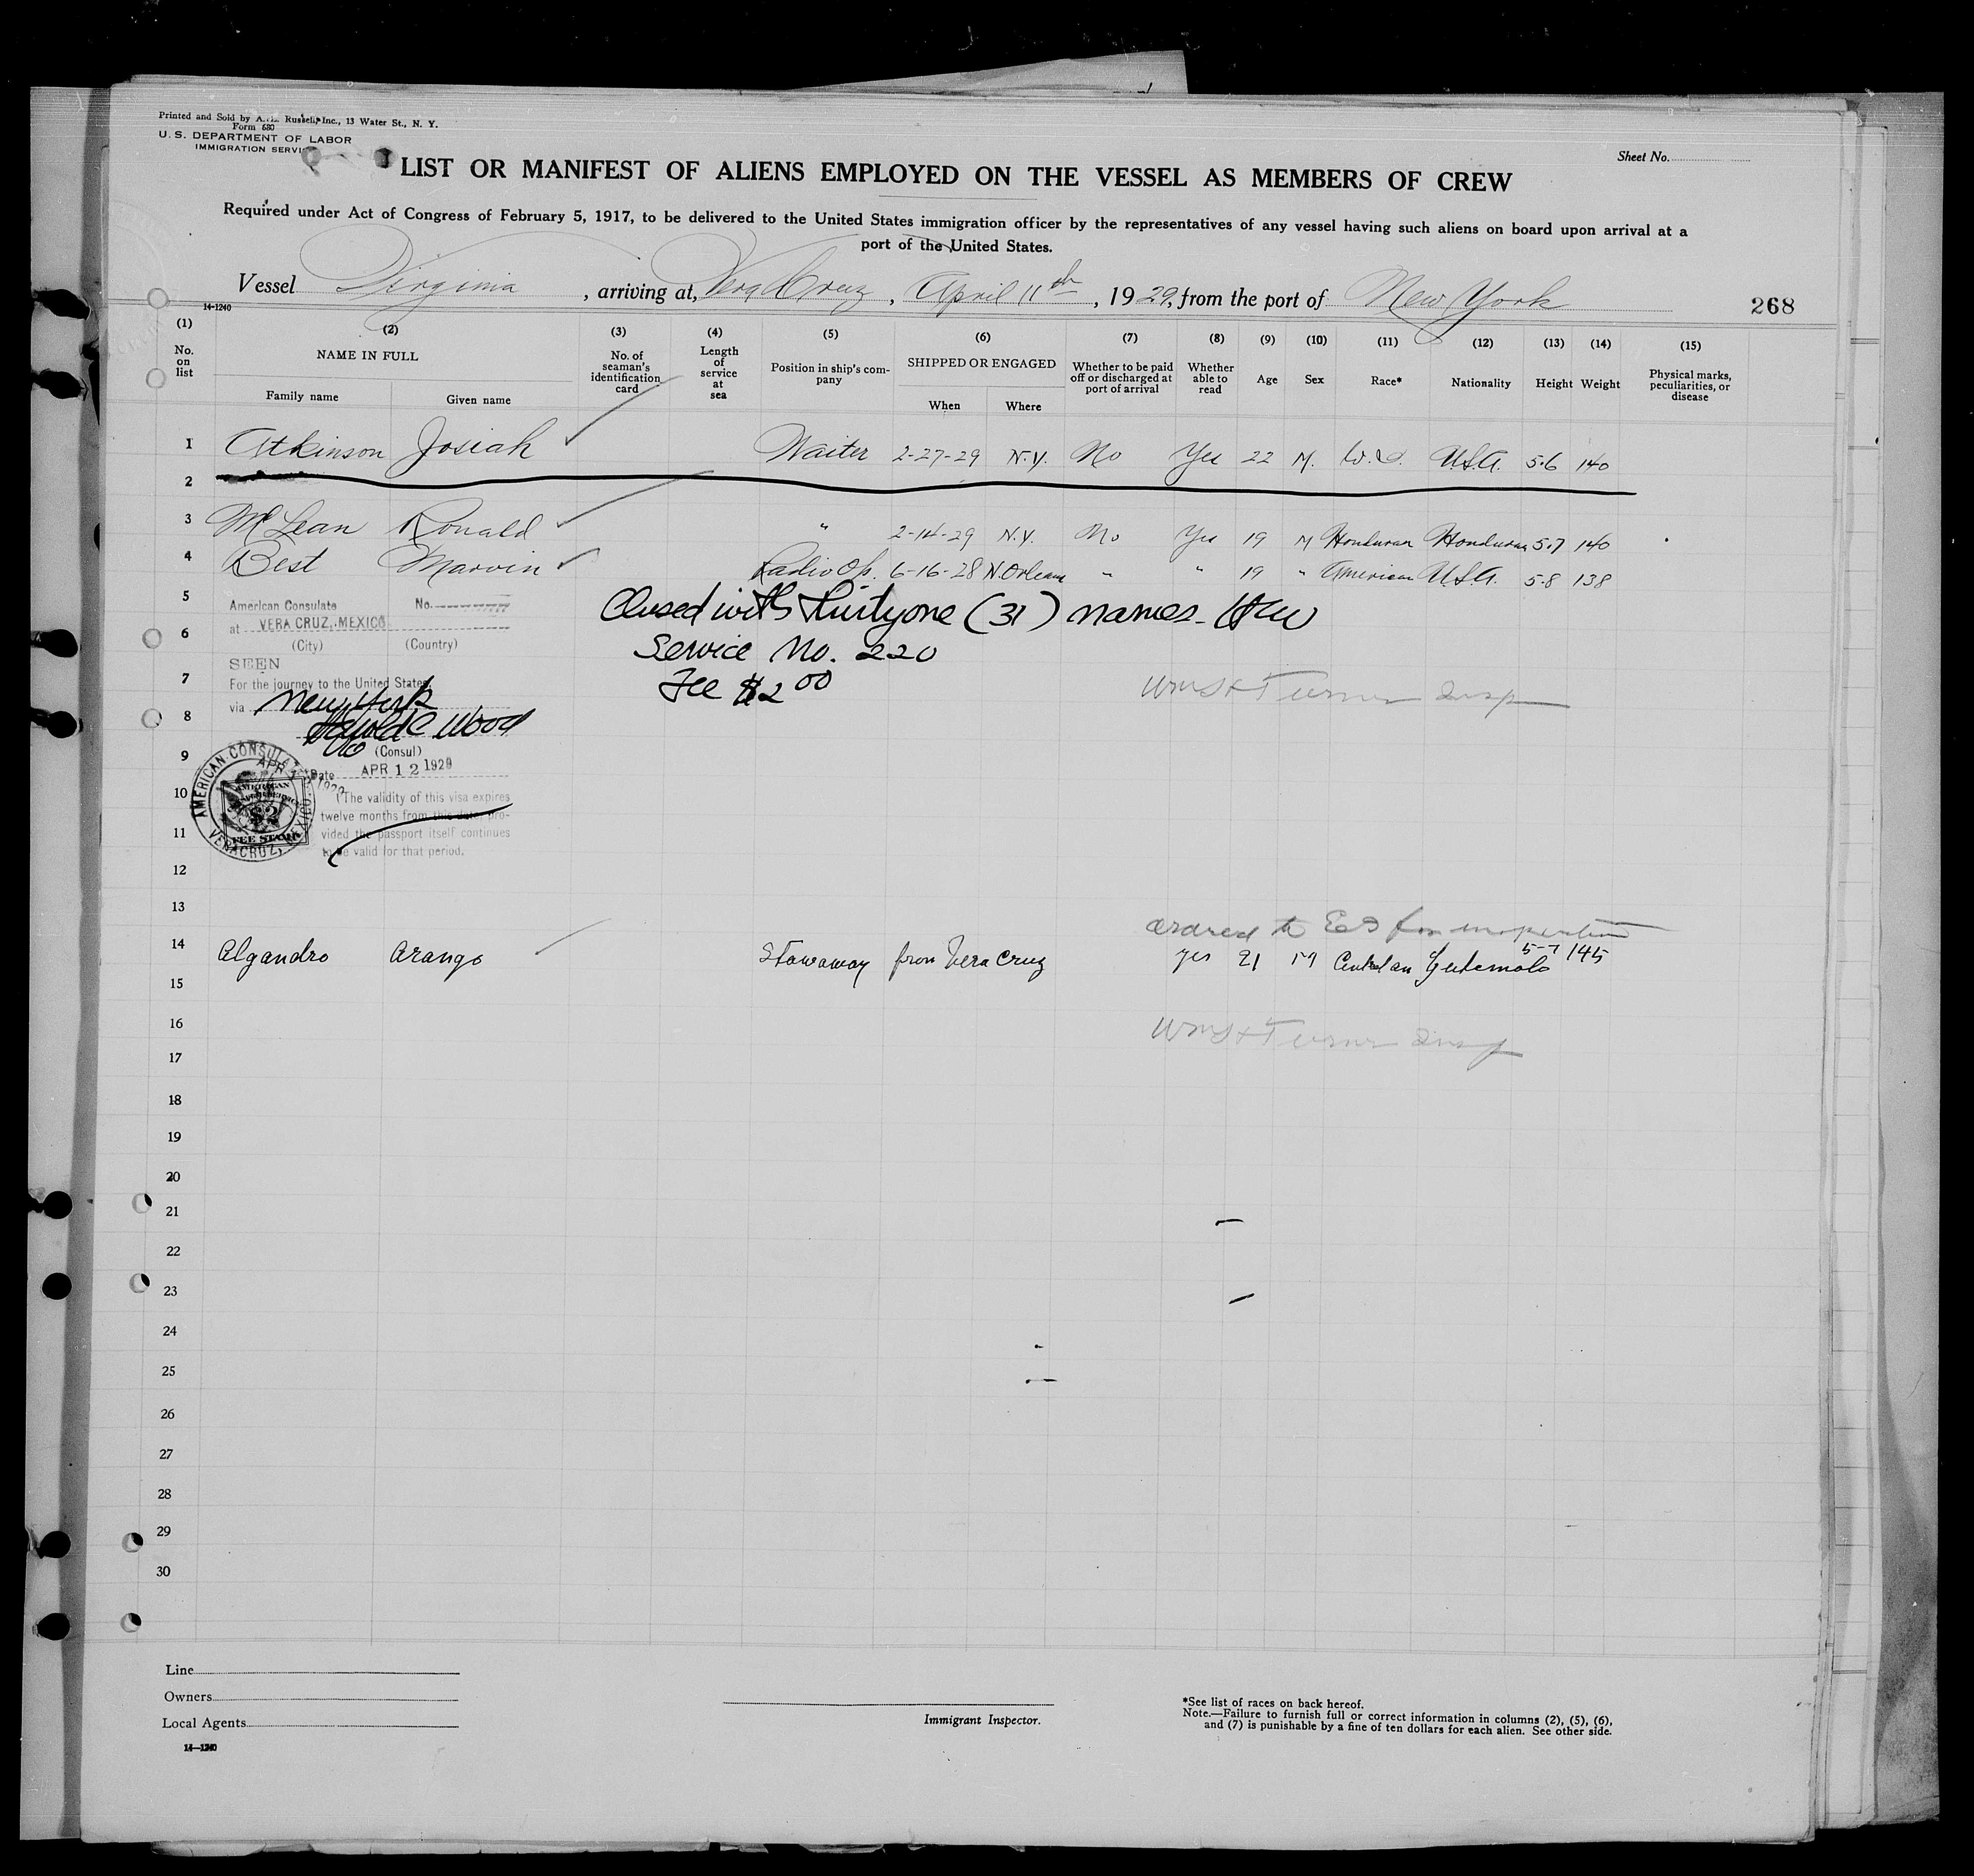 Printed and Sold by A. H. Russell, Inc., 13 Water St., N. Y.
Form 680
U. S. DEPARTMENT OF LABOR
IMMIGRATION SERVICE
Sheet No.
LIST OR MANIFEST OF ALIENS EMPLOYED ON THE VESSEL AS MEMBERS OF CREW
Required under Act of Congress of February 5, 1917, to be delivered to the United States immigration officer by the representatives of any vessel having such aliens on board upon arrival at a
port of the United States.
Vessel Virginia, arriving at, Vera Cruz, April 11th, 1929, from the port of New York
268
14-1240
(1) (2) (3) (4) (5) (6) (7) (8) (9) (10) (11) (12) (13) (14) (15)
No. on list NAME IN FULL No. of seaman's identification card Length of service at sea Position in ship's company SHIPPED OR ENGAGED Whether to be paid off or discharged at port of arrival Whether able to read Age Sex Race* Nationality Height Weight Physical marks, peculiarities, or disease
Family name Given name When Where
1 Atkinson Josiah Waiter 2-27-29 N.Y. No Yes 22 M. U.S.A. 5.6 140
2
3 McLean Ronald " 2-14-29 N.Y. No Yes 19 M Honduran Honduras 5.7 140
4 Best Marvin Radio Op. 6-16-28 N.Orleans " " 19 " American U.S.A. 5.8 138
5 American Consulate No. Closed with thirtyone (31) names - HCW
6 at VERA CRUZ, MEXICO
(City) (Country)
Service No. 220
SEEN
7 For the journey to the United States.
Fee $2 00
Turner Insp
8 via New York
Harold C Wood
9 (Consul)
Date APR 12 1929
AMERICAN CONSULATE
VERACRUZ, MEXICO
APR 12 1929
AMERICAN
$2
FEE STAMP
10 (The validity of this visa expires
twelve months from this date, pro-
11 vided the passport itself continues
to be valid for that period.
12
13
ordered to EI for inspection
14 Algandro Arango Stowaway from Vera Cruz yes 21 M Central an Gutemala 5-7 145
15
16
Turner Insp
17
18
19
20
21
22
23
24
25
26
27
28
29
30
Line
Owners
Local Agents
14-1240
Immigrant Inspector.
*See list of races on back hereof.
Note.—Failure to furnish full or correct information in columns (2), (5), (6),
and (7) is punishable by a fine of ten dollars for each alien. See other side.